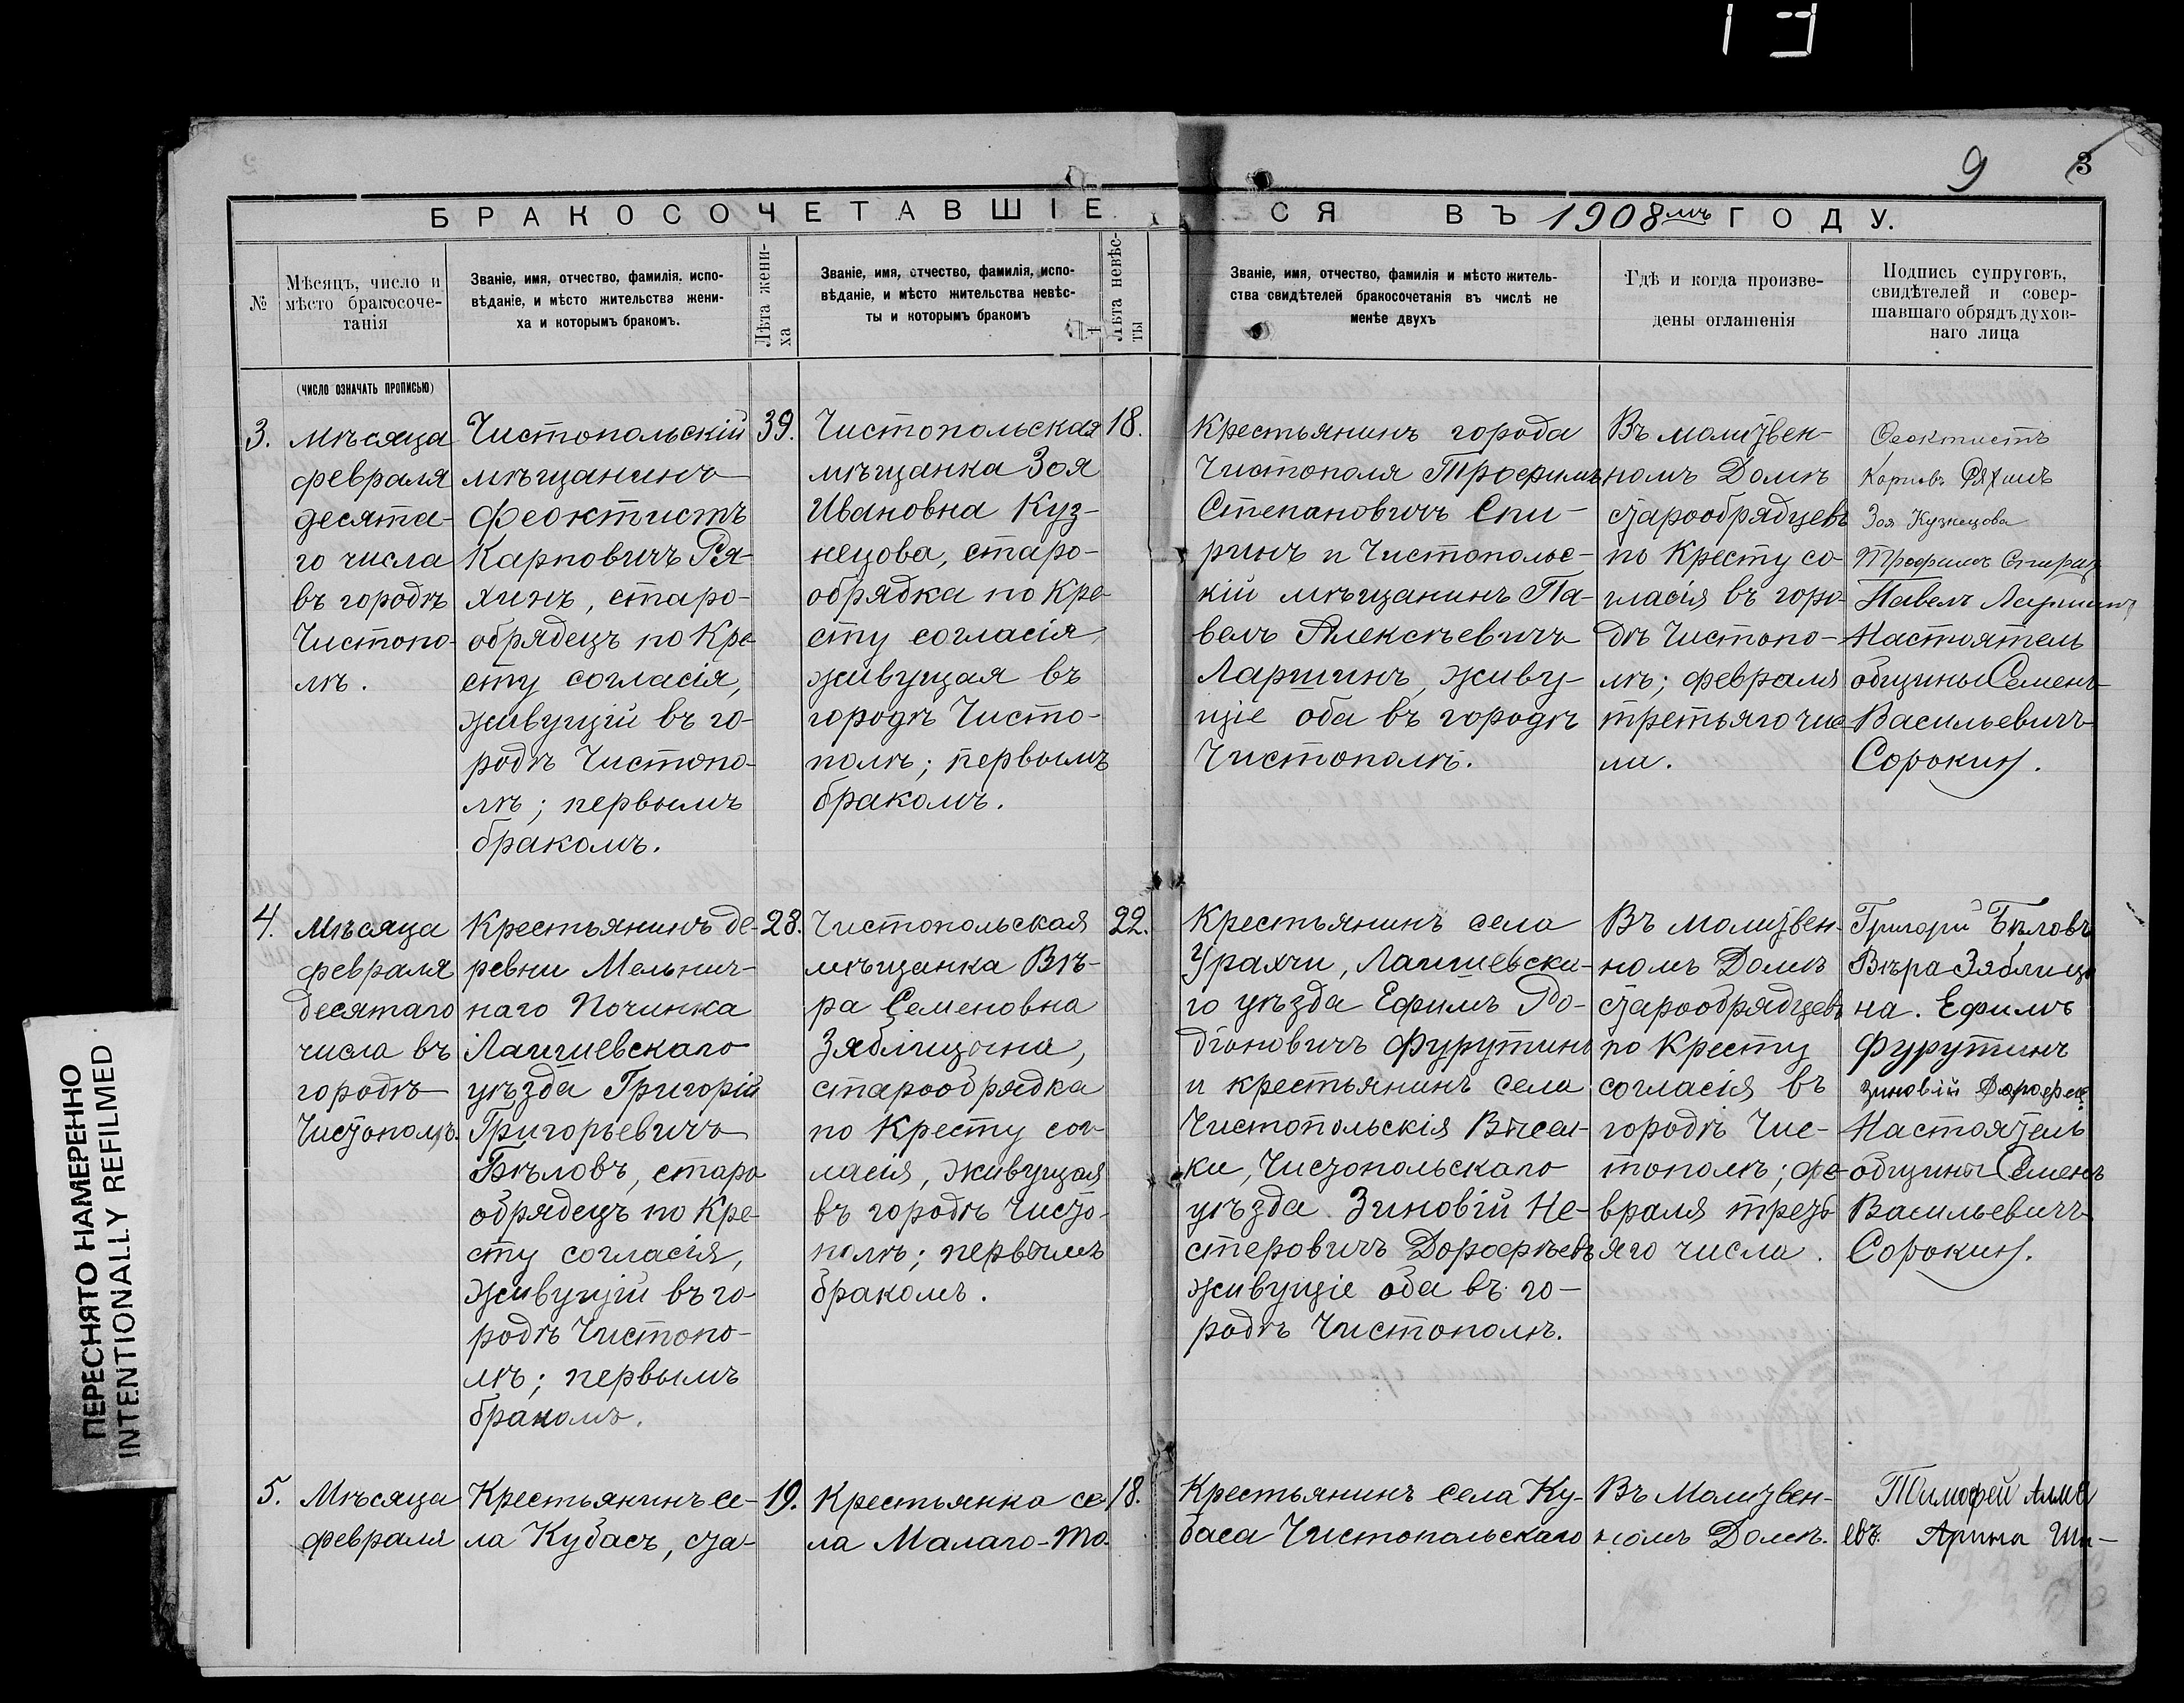 9 3
БРАКОСОЧЕТАВШІЕСЯ ВЪ 1908мъ ГОДУ.
№
Мѣсяцъ, число и
мѣсто бракосоче-
танія
(число означать прописью)
Званіе, имя, отчество, фамилія, испо-
вѣданіе, и мѣсто жительства жени-
ха и которымъ бракомъ.
Лѣта жени-
ха
Званіе, имя, отчество, фамилія, испо-
вѣданіе, и мѣсто жительства невѣс-
ты и которымъ бракомъ
Лѣта невѣс-
ты
Званіе, имя, отчество, фамилія и мѣсто житель-
ства свидѣтелей бракосочетанія въ числѣ не
менѣе двухъ
Гдѣ и когда произве-
дены оглашенія
Подпись супруговъ,
свидѣтелей и совер-
шавшаго обрядъ духов-
наго лица
3.
Мѣсяца
февраля
десята-
го числа
въ городѣ
Чистопо-
лѣ.
Чистопольскій
мѣщанинъ
Феоктистъ
Карповичъ Ря-
хинъ, старо-
обрядецъ по Кре-
сту согласія,
живущій въ го-
родѣ Чистопо-
лѣ; первымъ
бракомъ.
39.
Чистопольская
мѣщанка Зоя
Ивановна Куз-
нецова, старо-
обрядка по Кре-
сту согласія,
живущая въ
городѣ Чисто-
полѣ; первымъ
бракомъ.
18.
Крестьянинъ города
Чистополя Трофимъ
Степановичъ Спи-
ринъ и Чистопольс-
кій мѣщанинъ Па-
велъ Алексѣевичъ
Ларшинъ, живу-
щіе оба въ городѣ
Чистополѣ.
Въ молитвен-
номъ Домѣ
старообрядцевъ
по Кресту со-
гласія въ горо-
дѣ Чистопо-
лѣ; февраля
третьяго чис-
ли.
Феоктистъ
Карповъ Ряхинъ
Зоя Кузнецова
Трофимъ Спиринъ
Павелъ Ларшинъ
Настоятель
общины Семенъ
Васильевичъ
Сорокинъ.
4.
Мѣсяца
февраля
десятаго
числа въ
городѣ
Чистополѣ.
Крестьянинъ де-
ревни Мельнич-
наго Починка
Лаишевскаго
уѣзда Григорій
Григорьевичъ
Бѣловъ, старо
обрядецъ по Кре-
сту согласія,
живущій въ го-
родѣ Чистопо-
лѣ; первымъ
бракомъ.
28.
Чистопольская
мѣщанка Вѣ-
ра Семеновна
Зяблицына,
старообрядка
по Кресту сог-
ласія, живущая
въ городѣ Чисто-
полѣ; первымъ
бракомъ.
22.
Крестьянинъ села
Урахчи, Лаишевска-
го уѣзда Ефимъ Ро-
діоновичъ Фурутинъ
и крестьянинъ села
Чистопольскія Высел-
ки, Чистопольскаго
уѣзда Зиновій Не-
стеровичъ Дорофѣевъ
живущіе оба въ го-
родѣ Чистополѣ.
Въ молитвен-
номъ Домѣ
старообрядцевъ
по Кресту
согласія въ
городѣ Чис-
тополѣ; фе-
враля треть
яго числа.
Григорій Бѣловъ
Вѣра Зяблицы
на. Ефимъ
Фурутинъ
Зиновій Дорофее
Настоятель
общины Семенъ
Васильевичъ
Сорокинъ.
5.
Мѣсяца
февраля
Крестьянинъ се-
ла Кубасъ, ста-
19.
Крестьянка се-
ла Малаго-То-
18.
Крестьянинъ села Ку-
баса Чистопольскаго
Въ Молитвен-
номъ Домѣ.
Тимофей Алме
евъ. Арина Ши-
ПЕРЕСНЯТО НАМЕРЕННО
INTENTIONALLY REFILMED